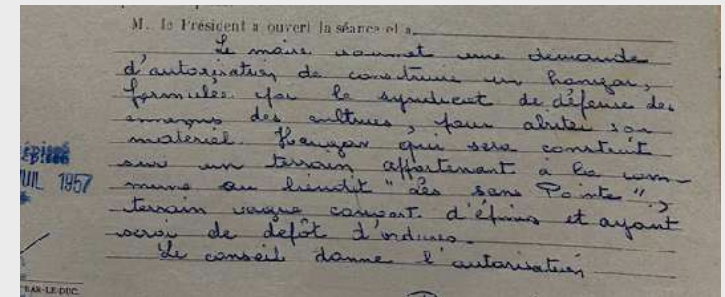 M. le Président a ouvert la séance et a
Le maire soumet une demande
d'autorisation de construire un hangar,
formulée par le syndicat de défense des
ennemis des cultures, pour abriter son
matériel. Hangar qui sera construit
sur un terrain appartenant à la com-
mune au lieudit "Les sans Pointe",
terrain vague couvert d'épines et ayant
servi de dépôt d'ordures.
Le conseil donne l'autorisation
UIL 1957
BAR-LE-DUC.